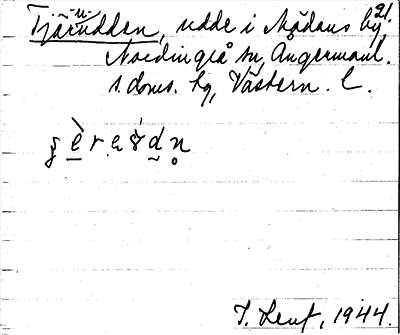 -u-
Tjärudden, udde i Mädans by,
Nordingrå sn, Ångermanl.
s. doms. hg, Västern. l.
T. Lenf, 1944.